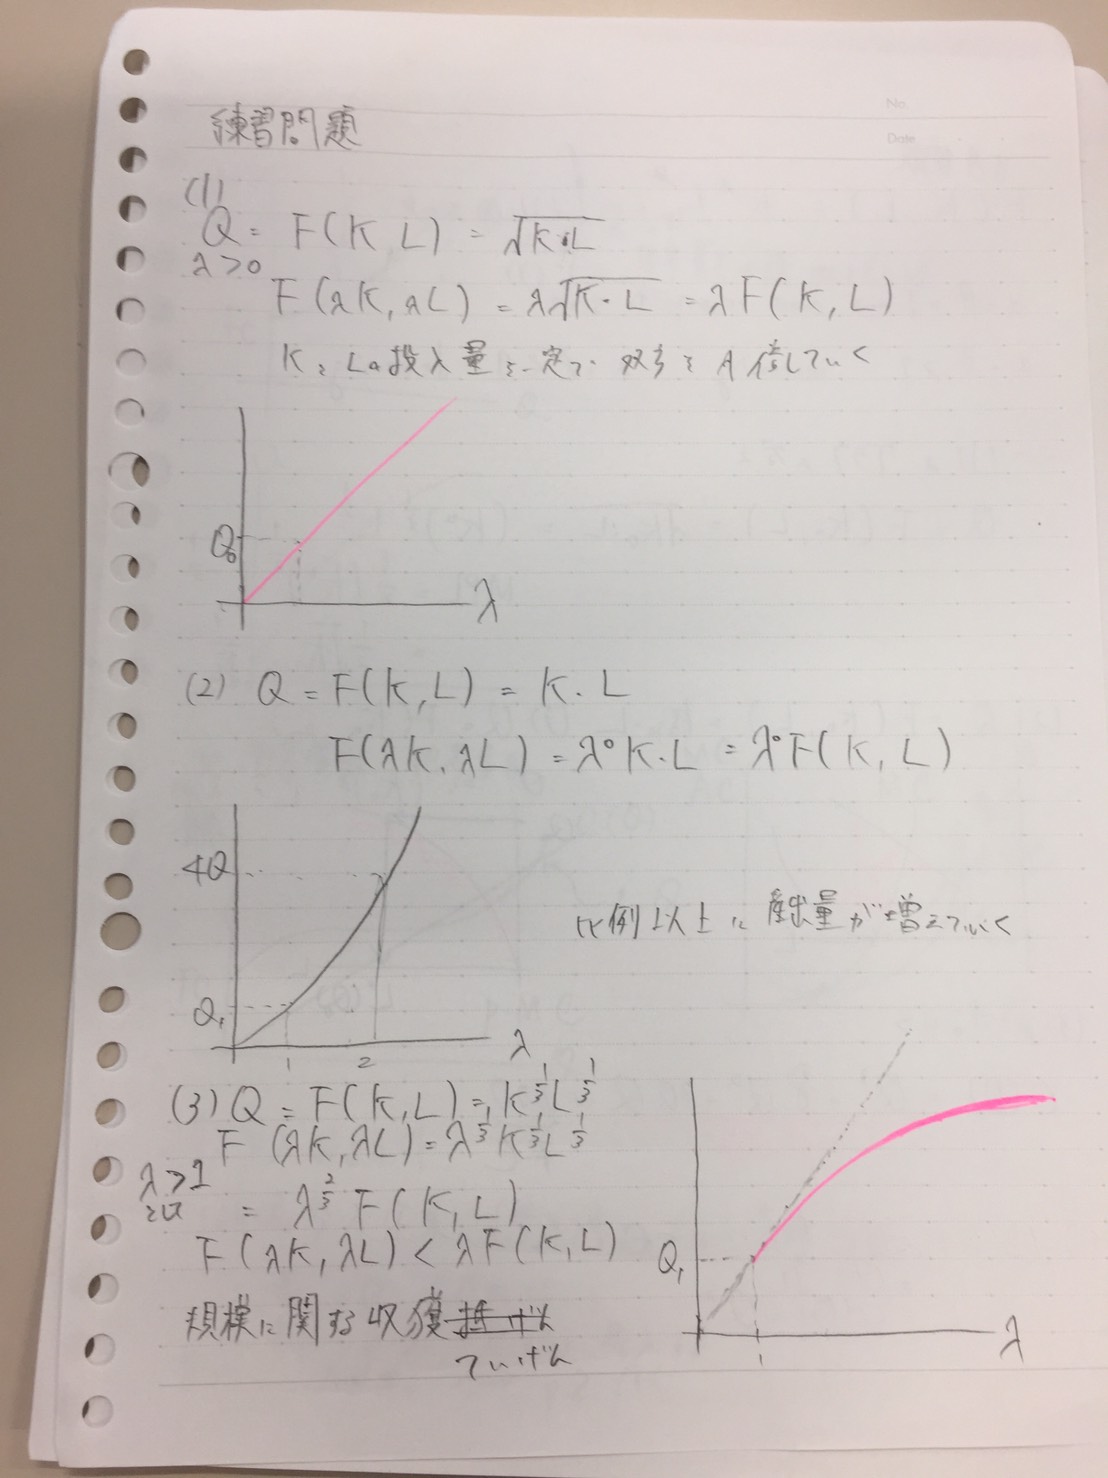 No.
Date
練習問題
(1)
Q = F(K, L) = √K・L
λ>0
F(λK, λL) = λ√K・L = λF(K, L)
KとLの投入量を一定で 双方を 倍していく
Q₀
λ
(2) Q = F(K, L) = K・L
F(λK, λL) = λ°K・L = λ°F(K, L)
4Q
比例以上に産出量が増えていく
Q₁
1 2 λ
(3) Q = F(K, L) = K^{1/3} L^{1/3}
F(λK, λL) = λ^{1/3} K^{1/3} L^{1/3}
λ>1
= λ^{2/3} F(K, L)
F(λK, λL) < λF(K, L)
規模に関する収獲
ていげん
Q₁
1 λ